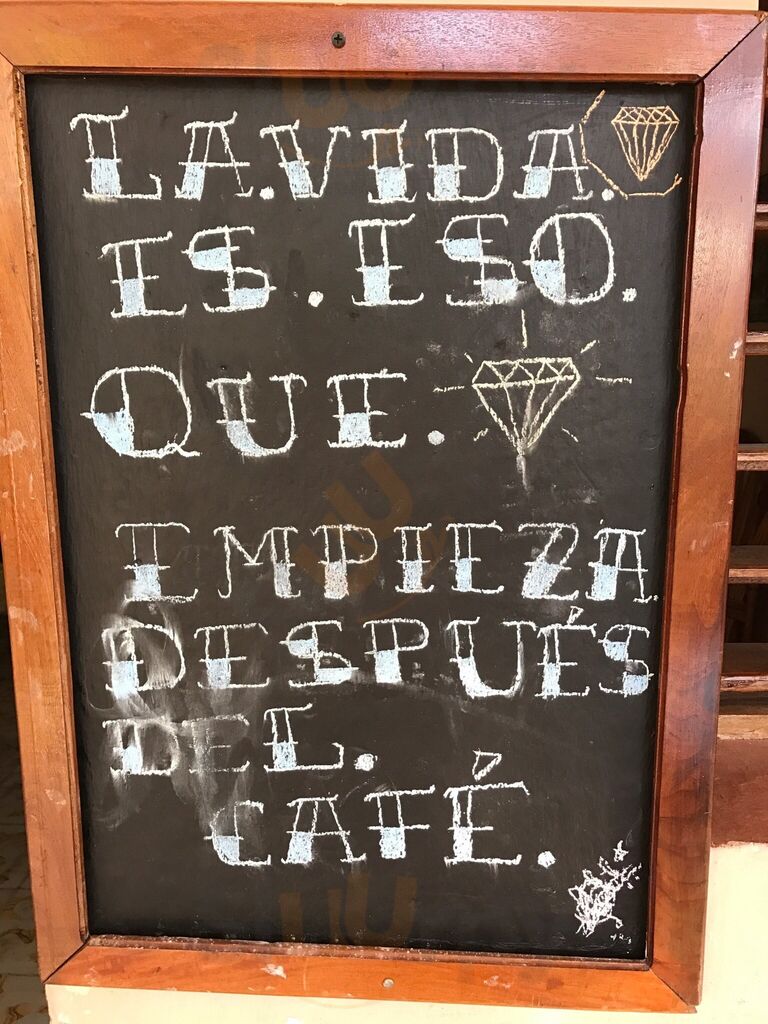 LA.VIDA.
ES.ESO.
QUE.
EMPIEZA.
DESPUÉS
DEL.
CAFÉ.